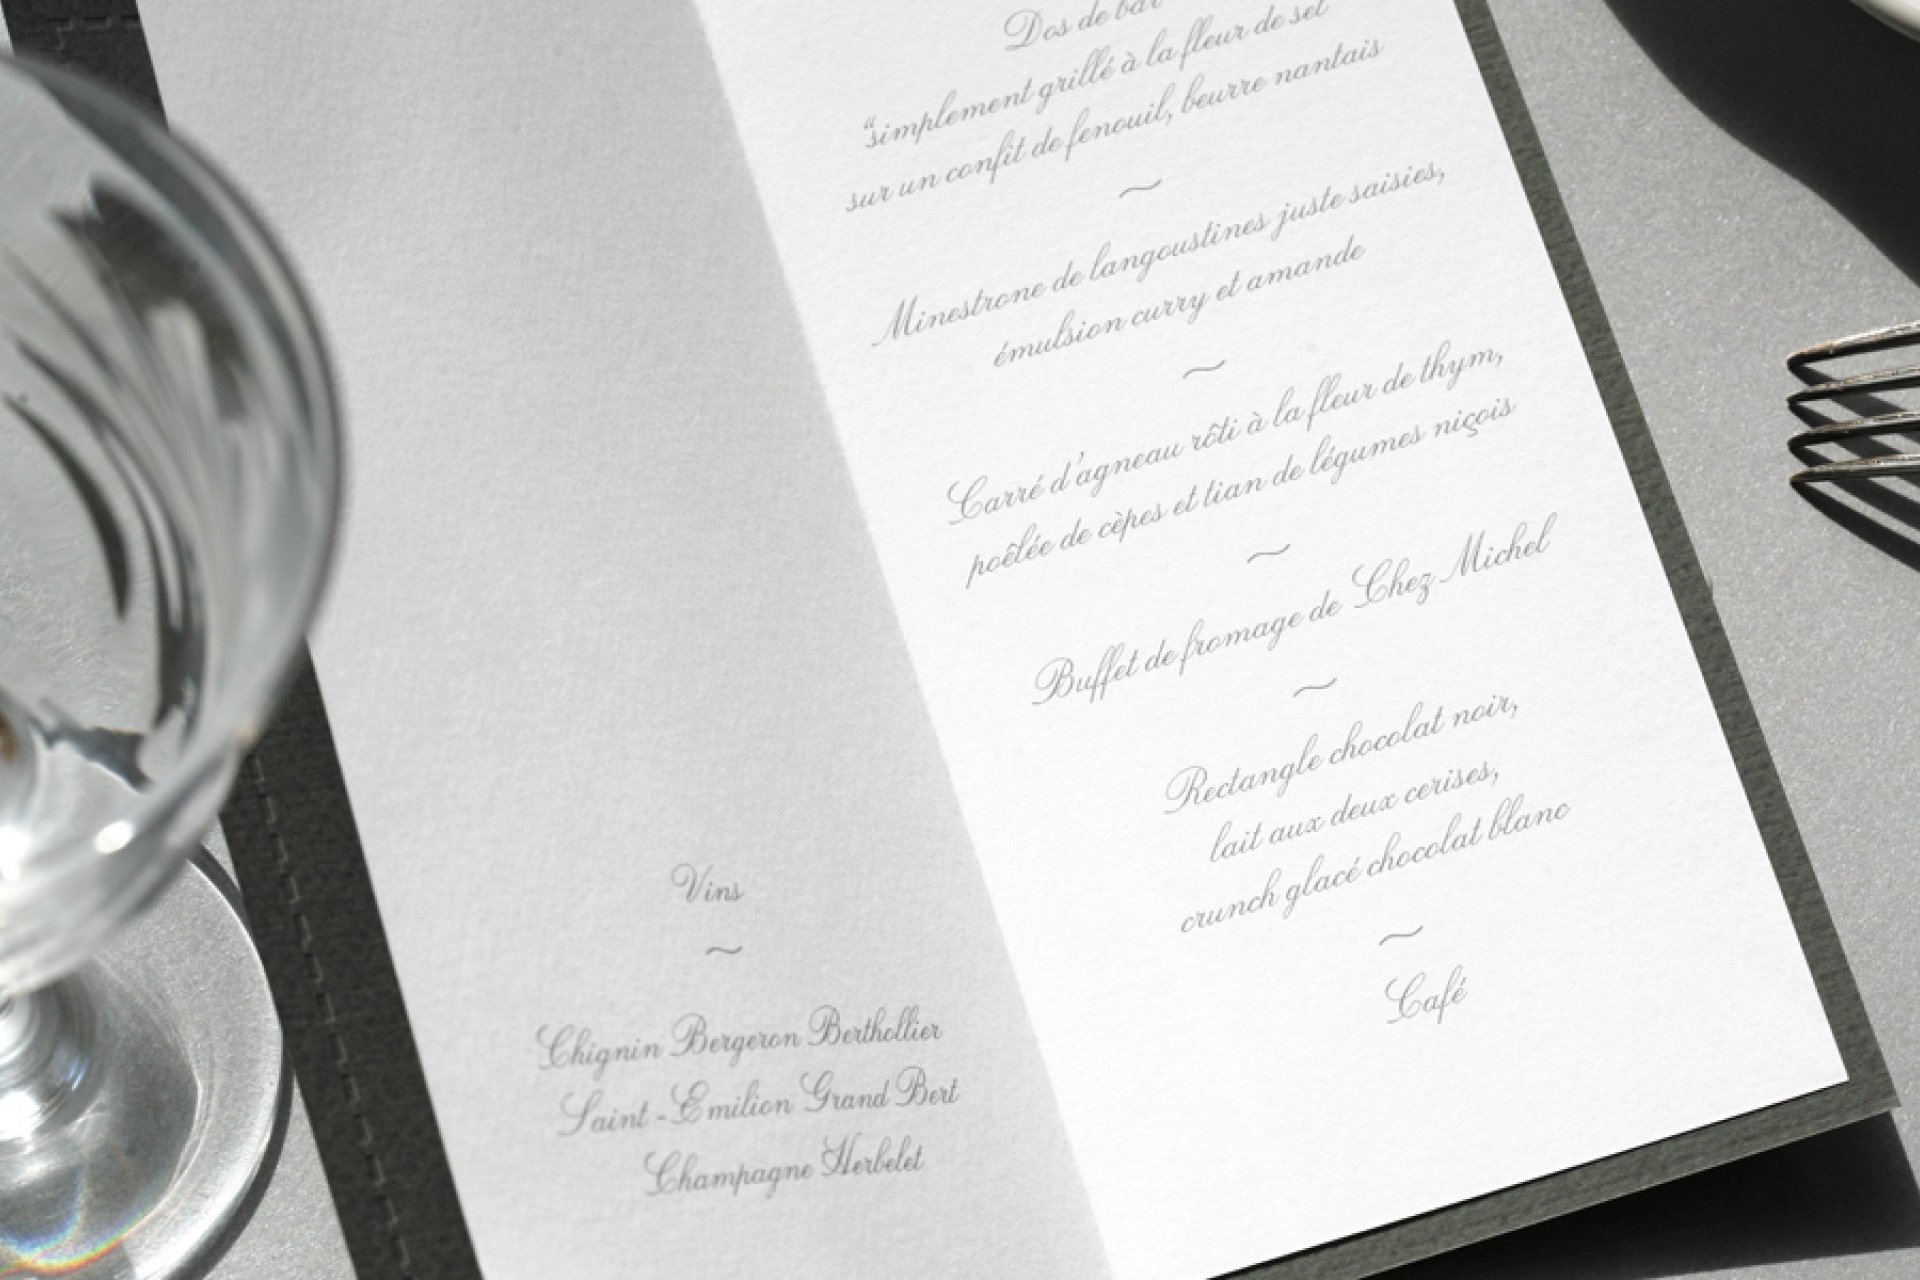 Vins
~
Chignin Bergeron Berthollier
Saint-Emilion Grand Bert
Champagne Herbelet
Dos de bar
"simplement grillé à la fleur de sel
sur un confit de fenouil, beurre nantais
~
Minestrone de langoustines juste saisies,
émulsion curry et amande
~
Carré d'agneau rôti à la fleur de thym,
poêlée de cèpes et tian de légumes niçois
~
Buffet de fromage de Chez Michel
~
Rectangle chocolat noir,
lait aux deux cerises,
crunch glacé chocolat blanc
~
Café